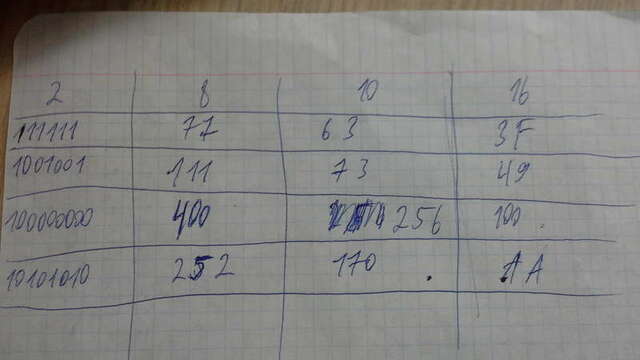 2 8 10 16
111111 77 63 3F
1001001 111 73 49
100000000 400 256 100
10101010 252 170 AA